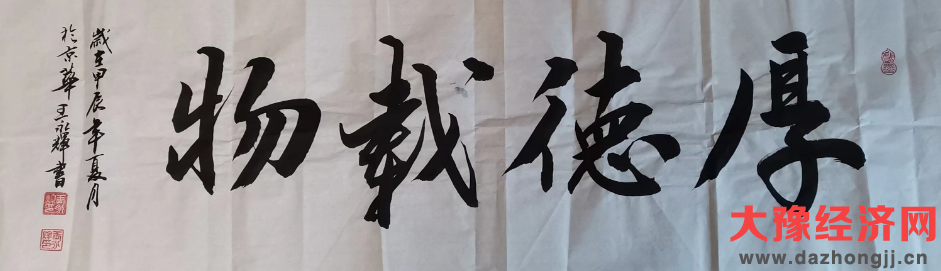 厚德载物
歲在甲辰年夏月
於京華王永輝書
大豫经济网
www.dazhongjj.cn